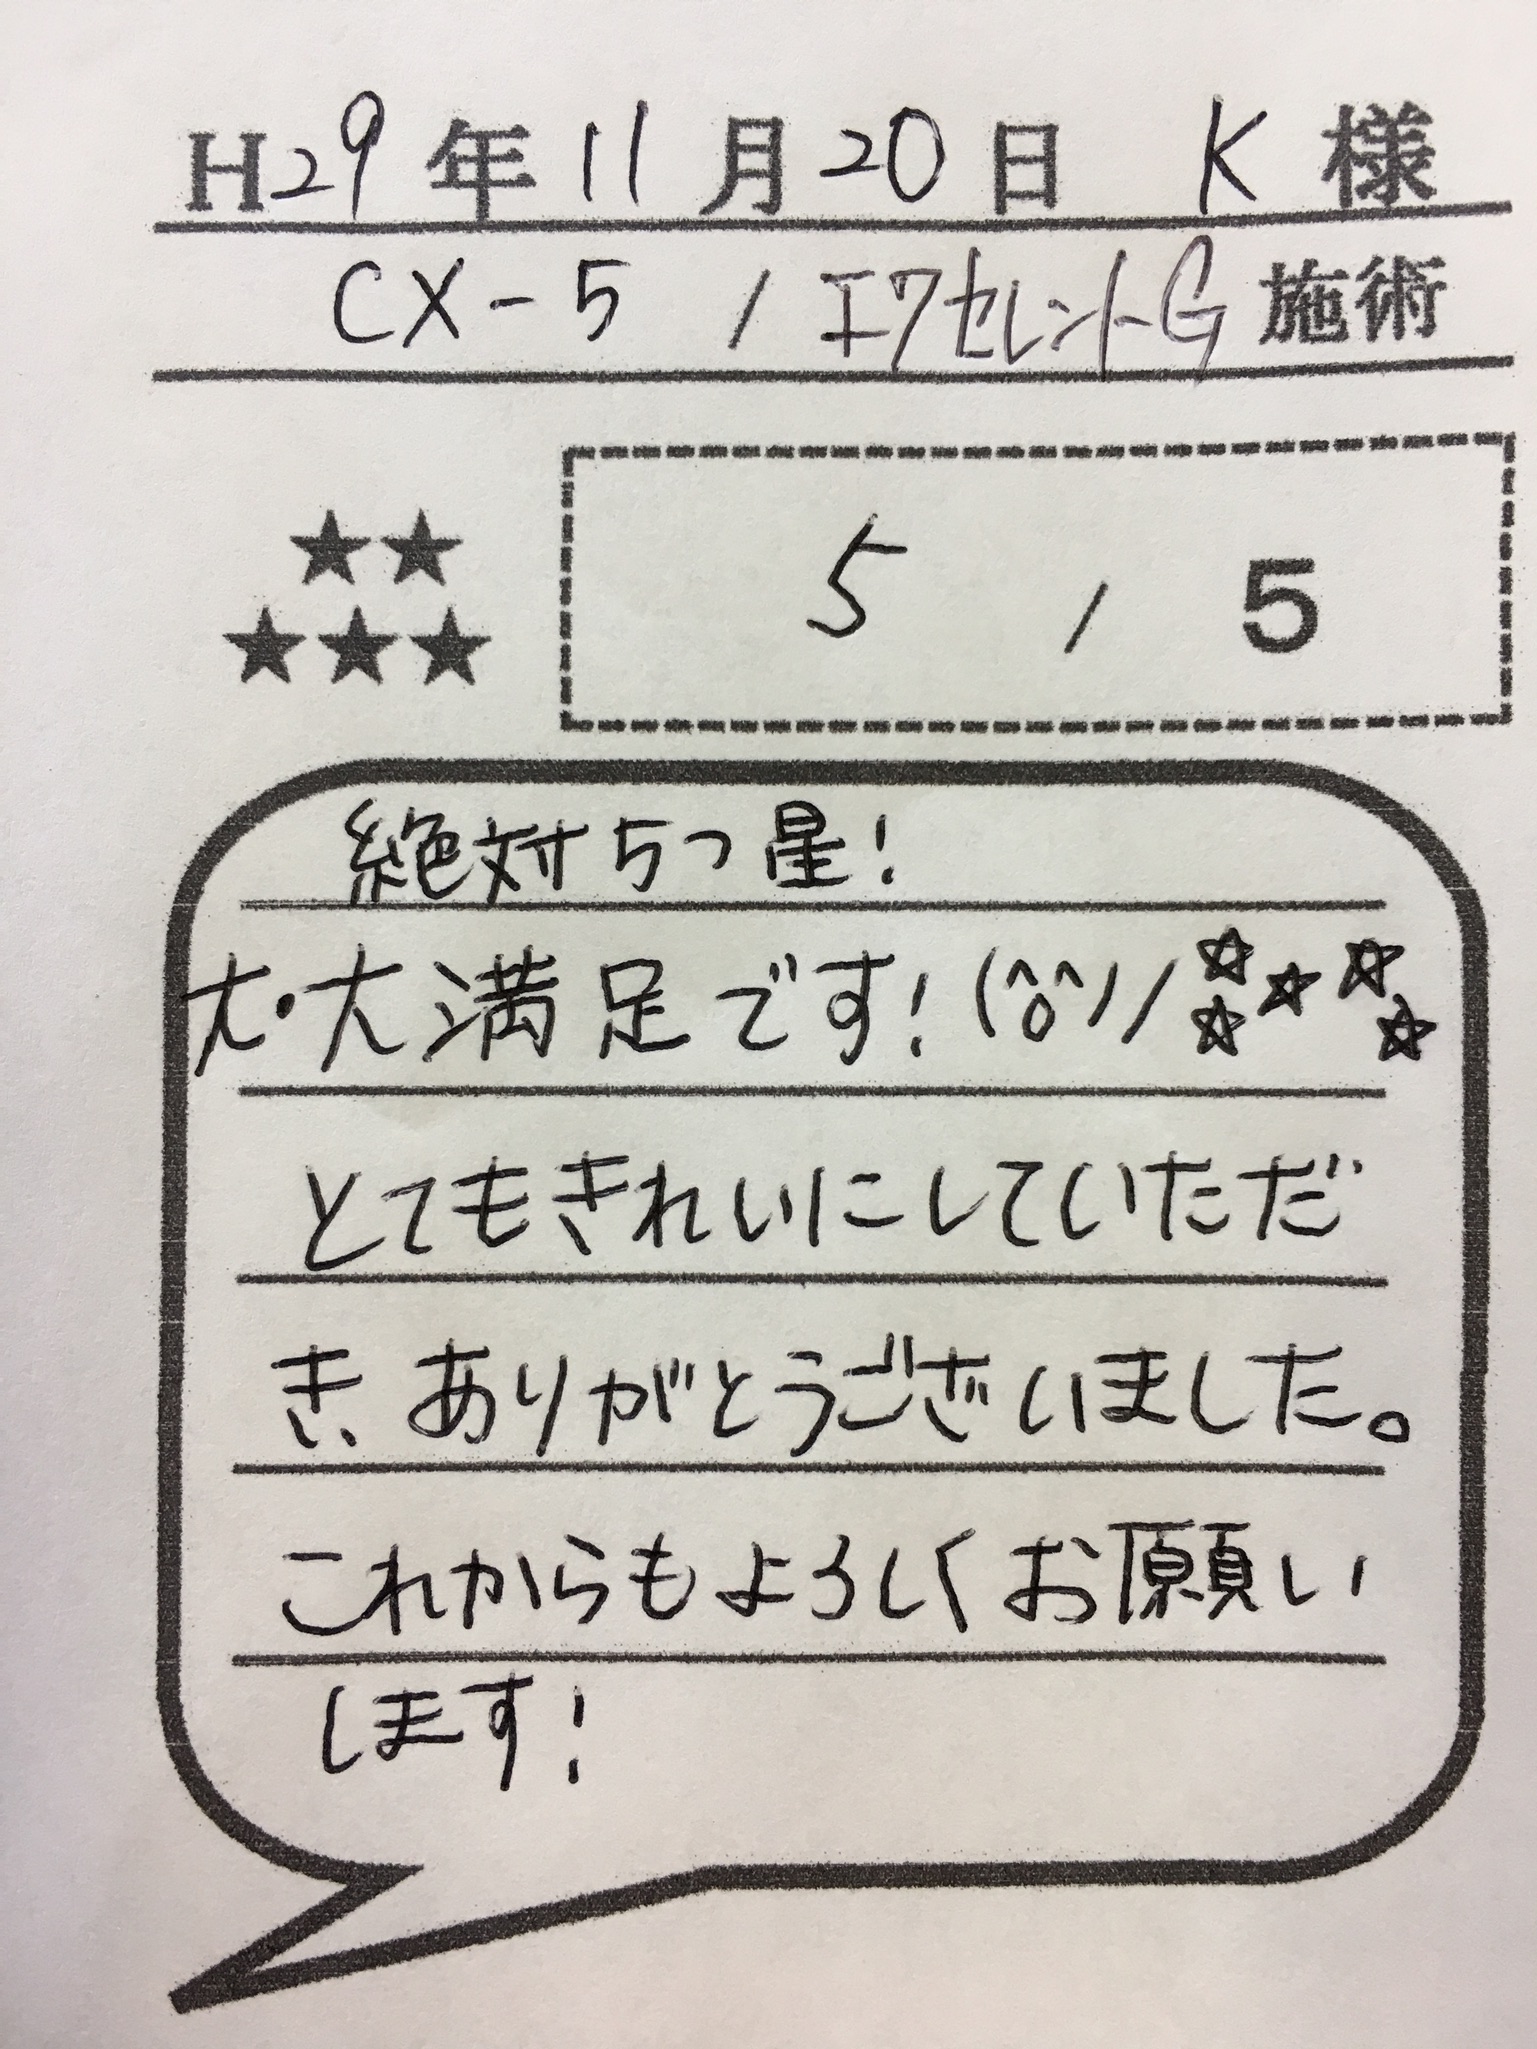 H29年11月20日 K様
CX-5 / エクセレントG 施術
★★
★★★
5 / 5
絶対5つ星!
大・大満足です!(^o^)/☆☆☆☆☆
とてもきれいにしていただ
き、ありがとうございました。
これからもよろしくお願い
します!